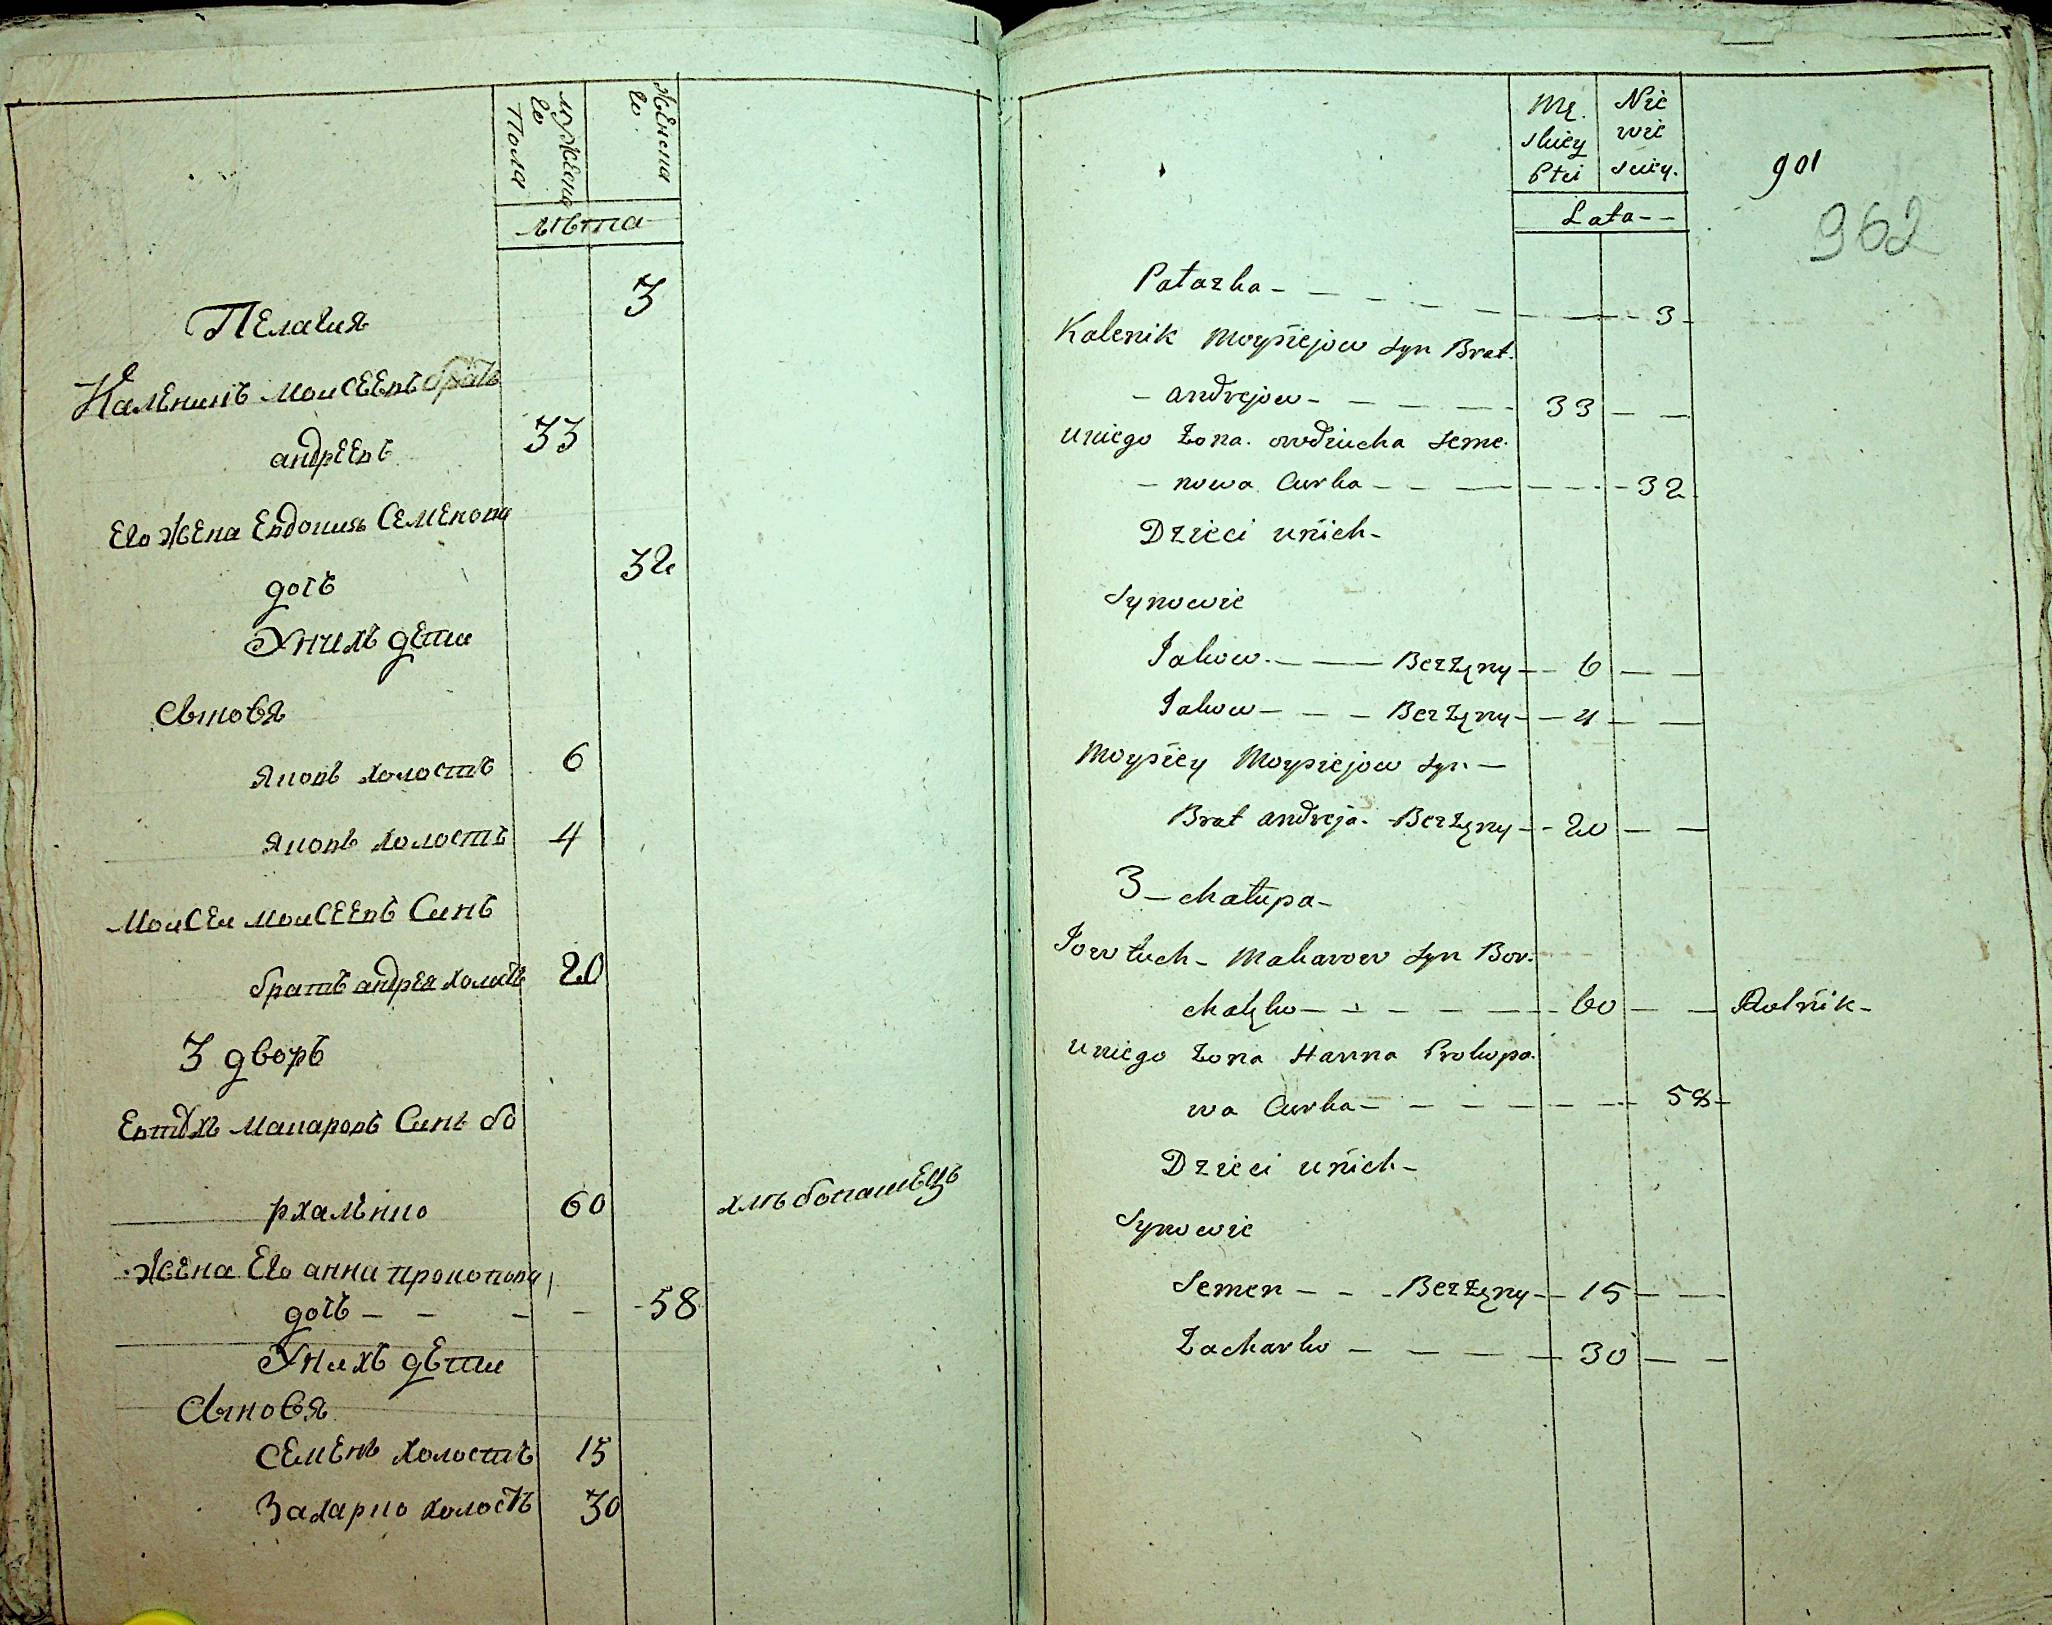 мужеска
го
Пола
женска
го
лѣта
Пелагия
3
Каленикъ Моисеевъ братъ
андреевъ
33
Его жена Евдокия Семенова
дочь
32
У нихъ дети
Сыновя
Яковъ холостъ 6
Яковъ холостъ 4
Моисеи Моисеевъ Синъ
братъ андрея холостъ 20
3 дворъ
Евтухъ Макаровъ Синъ бо
рхаленко 60 хлѣбопашецъ
Жена Его анна прокопова
дочь – – – – 58
У нихъ дѣти
Сыновя
Семенъ холостъ 15
Захарко холостъ 30
Mę.
skiey
Płci
Nie
wie
sciey.
901
962
Lata - -
Pałazka - 3
Kalenik Moysiejow Syn Brat.
- andrejow - 33
Uniego Żona. owdziucha Seme.
- nowa Curka - 32
Dzieci unich -
Synowie
Jakow. - Bezżęny - 6
Jakow - Bezżęny - 4
Moysiey Moysiejow Syn -
Brat andreja. - Bezżęny - 20
3 - chałupa -
Jowtuch - Makarow Syn Bor.
chalęko - 60 - Rolnik -
Uniego Żona Hanna Prokopo.
wa Curka - 58 -
Dzieci unich -
Synowie
Semen - Bezżęny - 15
Zacharko - 30